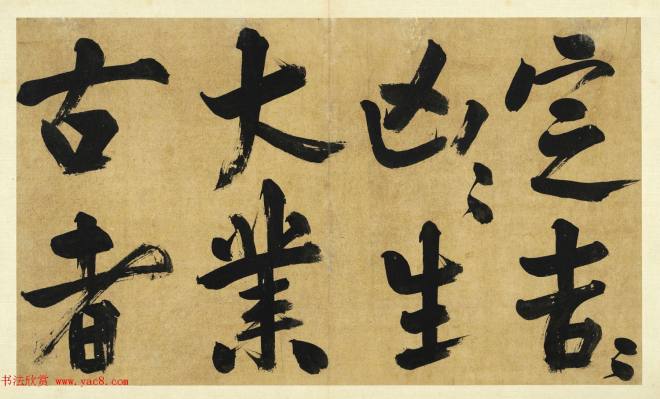 定吉〻
凶〻生
大業
古者
书法欣赏 www.yac8.com